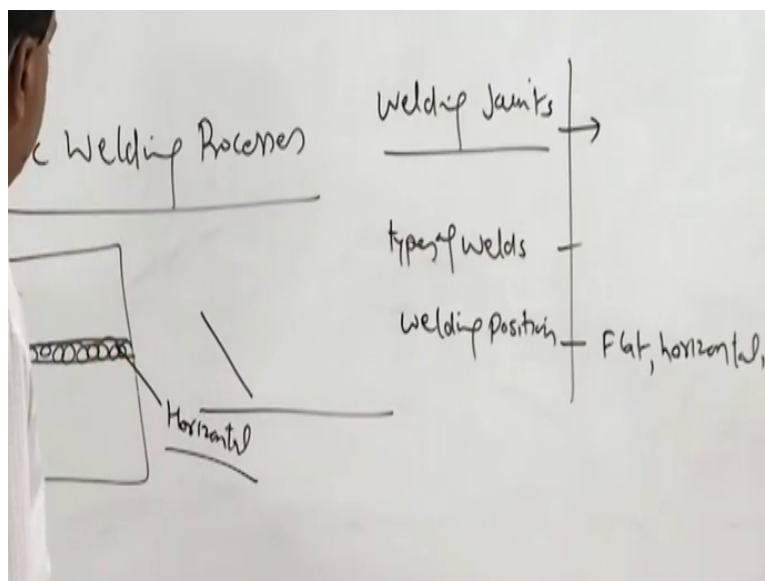 c Welding Processes
Horizontal
Welding Joints
types of welds
Welding position
Flat, horizontal,